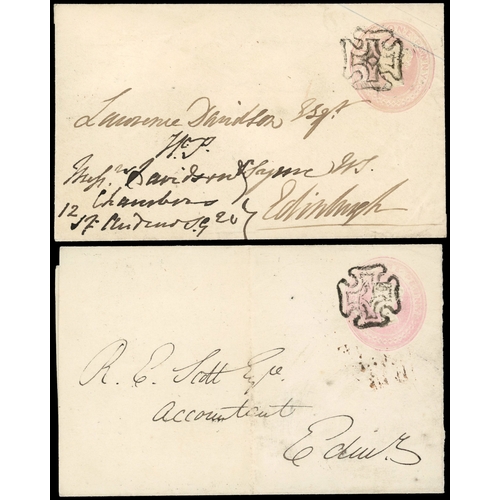 Lawrence Davidson Esqr.
W.S.
Messrs Davidson & Syme W.S.
Chambers
12
St Andrew Sq
Edinburgh
R. E. Scott Esqr.
Accountant
Edinr.